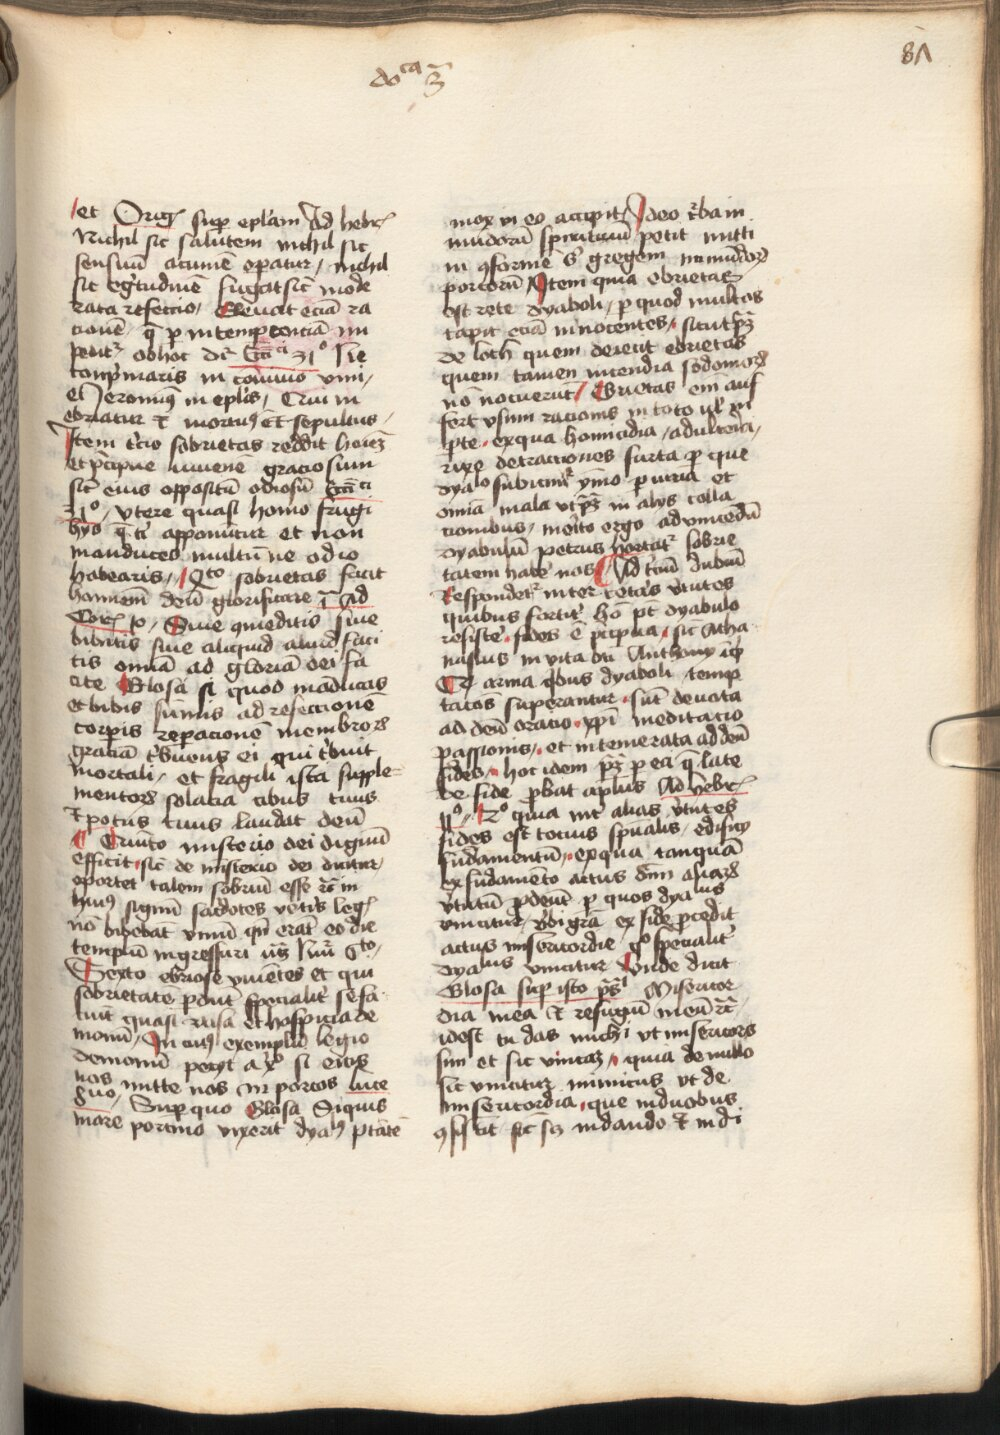 doca 3
81
et Orig sup eplam Ad hebr
Nichil sic salutem nichil sic
sensuum acumē opatur / nichil
sic egritudinē fugat sic mode
rata refeccio / Elevat eciā ra
cionē q p intempanciā im
pedit obhoc dr Ecci ci 31o Ne
compmaris in convivio vini /
et Jeronimus in eplis / Qui in
ebriatur et mortuus est sepultus /
Item tcio sobrietas reddit hoiem
et pcipue iuvenē graciosum
sic eius oppositū odiosū Ecci ci
31o / Utere quasi homo frugi
hys q ti apponūtur et non
manduces multū ne odio
habearis / Qto sobrietas facit
hominem deū glorificare j Ad
Cor 10 / Sive manducatis sive
bibitis sive aliquid aliud faci
tis omnia ad gloriā dei fa
cite Glosa si quod māducas
et bibis sumis ad refeccionē
corpis repacionē membror
gracia tbuens ei qui tbuit
mortali / et fragili ista supple
mentor solacia cibus tuus
et potus tuus laudat deū
Quinto misterio dei dignum
efficit sic de misterio dei dicitur
oportet talem sobriū esse rc in
huius signum sacdotes vetis leg
nō bibebāt vinum qn erāt eo die
templū ingressuri
Sexto ebriose viventes et qui
sobrietatē pdunt specialit se fa
ciūt quasi casa et hospicia de
monū / In cuius exemplū legio
demonū petyt a xpo si eicis
nos mitte nos in porcos luce
8vo / Super quo Glosa Siquis
more porcino vixerit dyabus ptatē
mox in eo accipit / Ideo turba in
mundorū spirituū petit mitti
in gregem immundor
porcorū Item quia ebrietas
est rete dyaboli / p quod multos
capit eciā innocentes / sicut pz
de loth quem decepit ebrietas
quem tamen incendia sodomor
nō nocuerūt / Ebrietas em auf
fert usum racionis in toto vel in
pte ex qua homicidia / adulteria /
rixe detracciones furta p que
dyalo subicimur ymo p curiā et
omnia mala ut pz in alys colla
cionibus / merito ergo ad vincedū
dyabulū petrus hortatr sobrie
tatem habe nos Ad tciū dubiū
Respondetr inter cetas virtutes
quibus fortit ho pt dyabulo
resiste fides ē pcipua sic Atha
nasius in vita bti Anthony icp
arma qbus dyaboli temp
taciōs superantur sūt devota
ad deū oracio xpi meditacio
passionis et intemerata ad deū
fides / hoc idem pz p ea q late
de fide pbat aplus Ad hebr
11o / Ro quia int alias virtutes
fides est tocius spualis edificy
fundamentū / ex qua tanquā
ex fundamēto actus om aliar
virtutū pdeūt p quos dyalus
vincitur / Vbi gra ex fide pcedit
actus misericordie go specialit
dyalus vincitur Unde dicit
Glosa sup isto ps Misericor
dia mea et refugiū meū rc
idest tu das michi ut misericors
sim et sic vincā / quia de nullo
sic vincitur inimicus ut de
misericordia que in duobus
stit sc in dando et in di